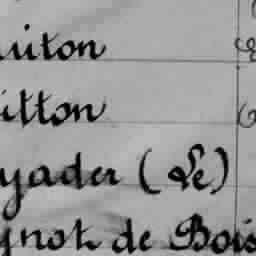 uiton
itton
yader (Le)
gnot de Bois